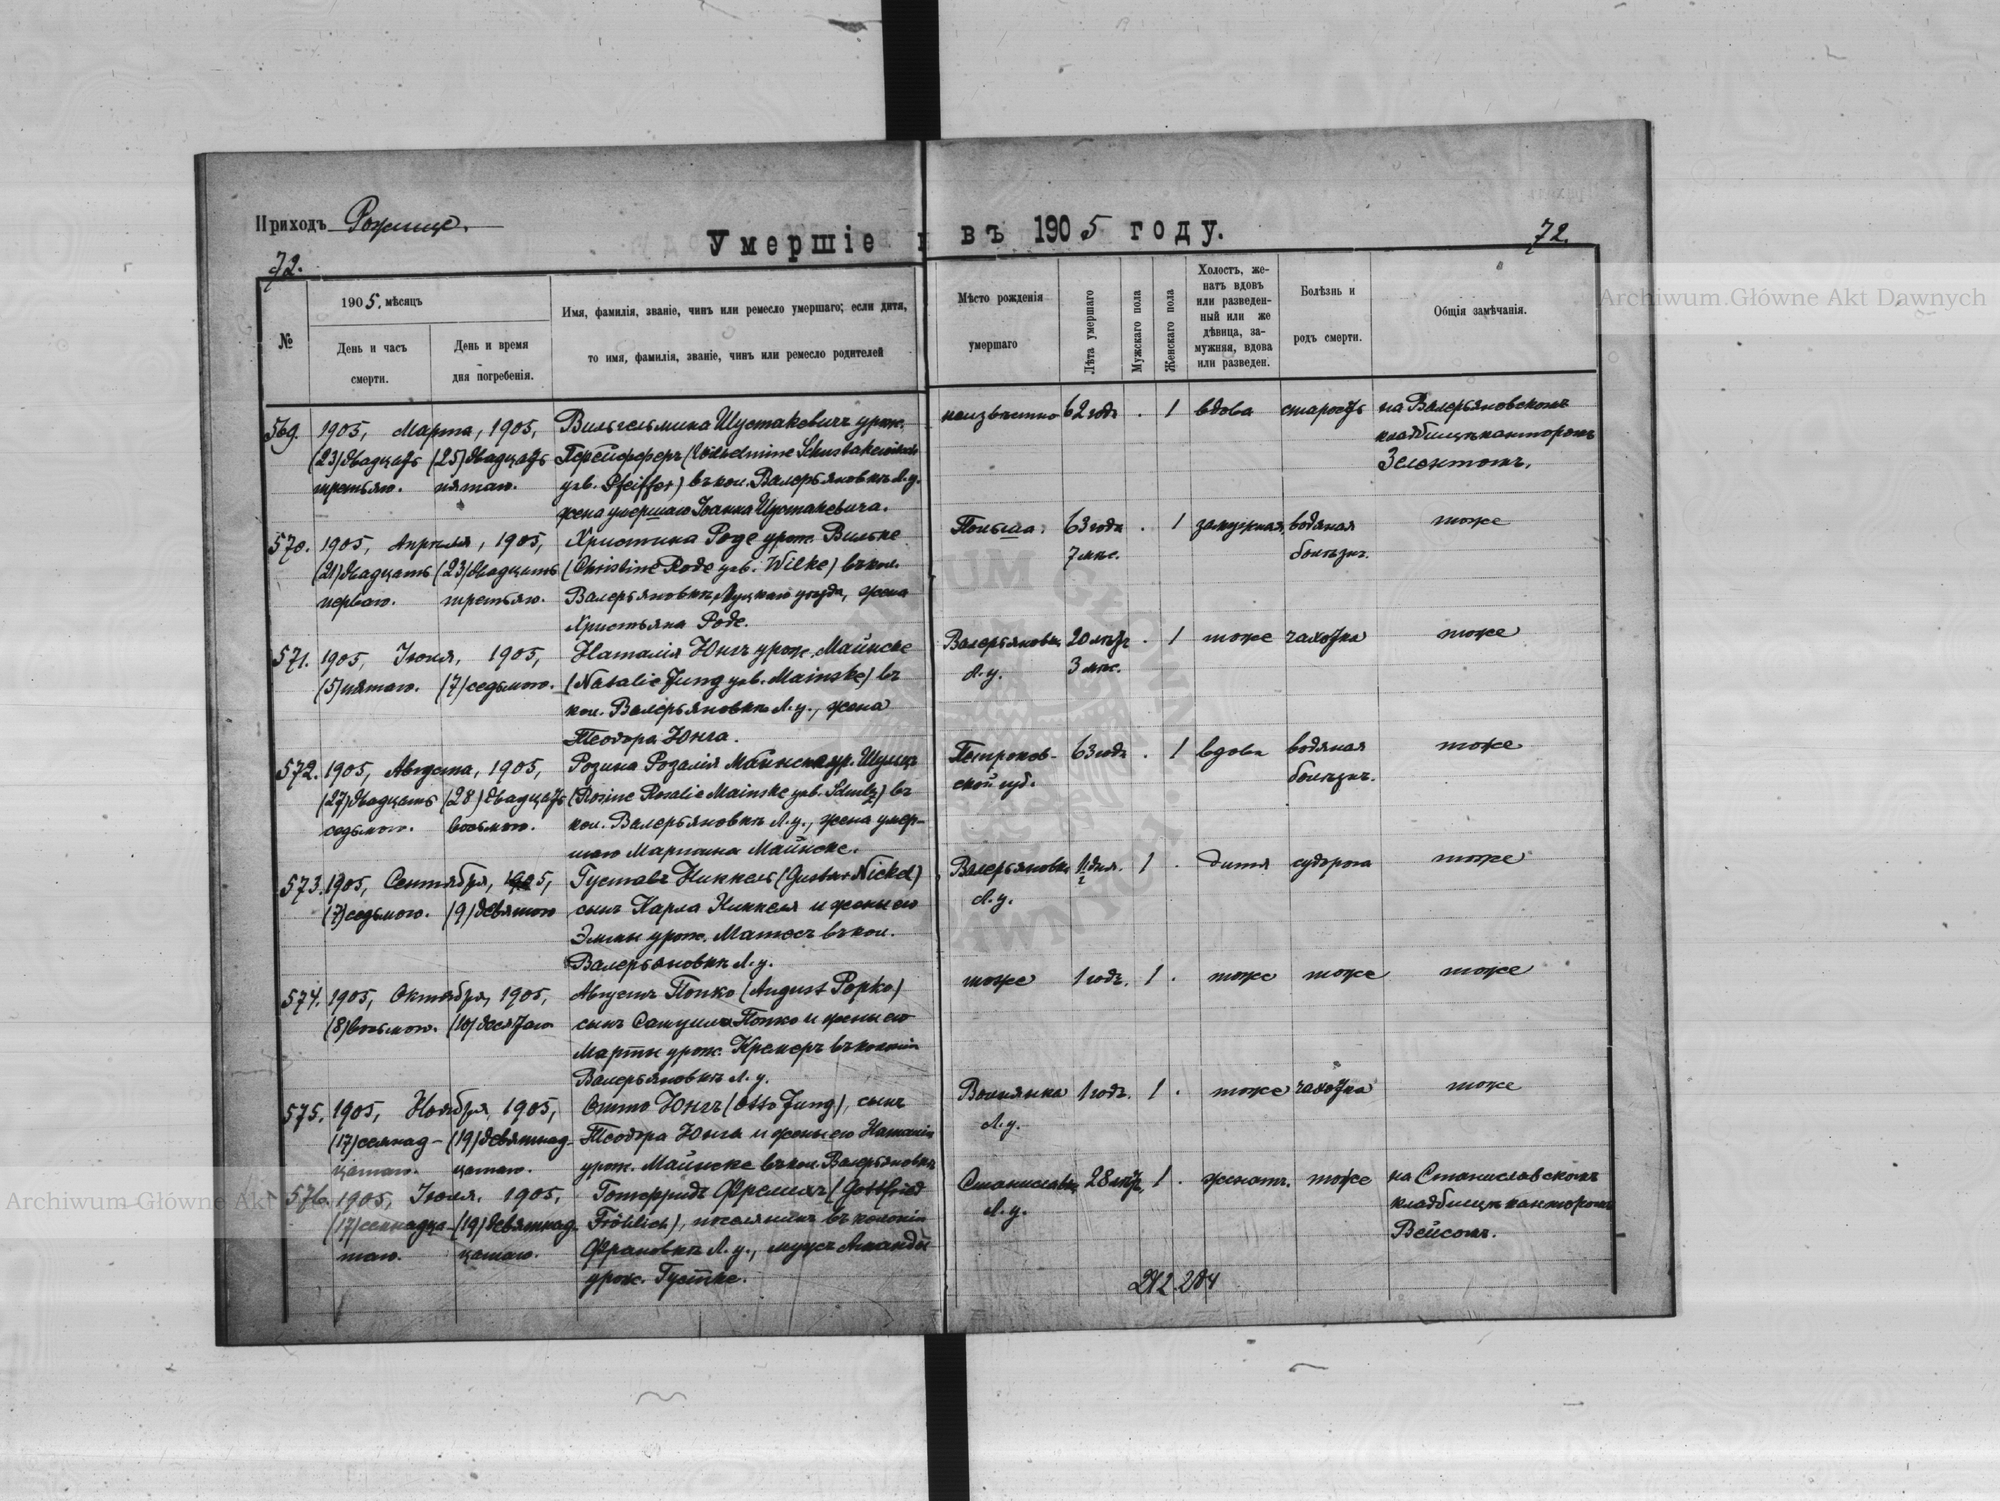 Приходъ Рожище.
Умершіе въ 1905 году.
72.
72.
№
1905. мѣсяцъ
День и часъ смерти.
День и время дня погребенія.
Имя, фамилія, званіе, чинъ или ремесло умершаго; если дитя,
то имя, фамилія, званіе, чинъ или ремесло родителей
Мѣсто рожденія умершаго
Лѣта умершаго
Мужскаго пола
Женскаго пола
Холостъ, же-
натъ вдовъ
или разведен-
ный или же
дѣвица, за-
мужняя, вдова
или разведен.
Болѣзнь и родъ смерти.
Общія замѣчанія.
569. 1905, Марта, 1905, Вильгельмина Шустакевичъ урож. неизвѣстно 62 годъ . 1 вдова старость на Валерьяновскомъ
(23) двадцать (25) двадцать Пфейфферъ (Wilhelmine Schustakewitsch кладбищѣ канторомъ
третьяго. пятаго. геб. Pfeiffer) въ кол. Валерьяновкѣ Л. у. Зелентомъ.
жена умершаго Іоанна Шустакевича.
570. 1905, Апрѣля, 1905, Христина Роде урож. Вильке Польша. 63 года . 1 замужняя водяная тоже
(21) двадцать (23) двадцать (Christine Rode geb. Wilke) въ кол. 7 мѣс. болѣзнь.
перваго. третьяго. Валерьяновкѣ, Луцкаго уѣзда, жена
Христьяна Роде.
571. 1905, Іюня, 1905, Наталія Юнгъ урож. Майнске Валерьяновка 20 лѣтъ . 1 тоже чахотка тоже
(5) пятаго. (7) седьмого. (Natalie Jung geb. Mainske) въ Л. у. 3 мѣс.
кол. Валерьяновкѣ Л. у., жена
Теодора Юнга.
572. 1905, Августа, 1905, Розина Розалія Майнске ур. Шульцъ Петроков- 63 года . 1 вдова водяная тоже
(27) двадцать (28) двадцать (Rosine Rosalie Mainske geb. Schulz) въ ской губ. болѣзнь.
седьмого. восьмого. кол. Валерьяновкѣ Л. у., жена умер-
шаго Мартина Майнске.
573. 1905, Сентября, 1905, Густавъ Никкель (Gustav Nickel) Валерьяновка дня. 1 . дитя судорога тоже
(7) седьмого. (9) девятого сынъ Карла Никкеля и жены его Л. у.
Эммы урож. Матесъ въ кол.
Валерьяновкѣ Л. у.
574. 1905, Октября, 1905, Августъ Попко (August Popko) тоже 1 годъ. 1 . тоже тоже тоже
(8) восьмого. (10) десятаго сынъ Самуила Попко и жены его
Марты урож. Кремеръ въ колоніи
Валерьяновкѣ Л. у.
575. 1905, Ноября, 1905, Отто Юнгъ (Otto Jung), сынъ Волнянка 1 годъ. 1 . тоже чахотка тоже
(17) семнад- (19) девятнад- Теодора Юнга и жены его Наталіи Л. у.
цатаго. цатаго. урож. Майнске въ кол. Валерьяновкѣ
576. 1905, Іюля, 1905, Готфридъ Фрелихъ (Gottfried Станиславка 28 лѣтъ, 1 . женатъ. тоже на Станиславскомъ
(17) семнадца- (19) девятнад- Fröhlich), поселянинъ въ колоніи Л. у. кладбищѣ канторомъ
таго. цатаго. Л. у., мужъ Аманды Вейсомъ.
урож. Густке.
212 204
Archiwum Główne Akt Dawnych
Archiwum Główne Akt Dawnych